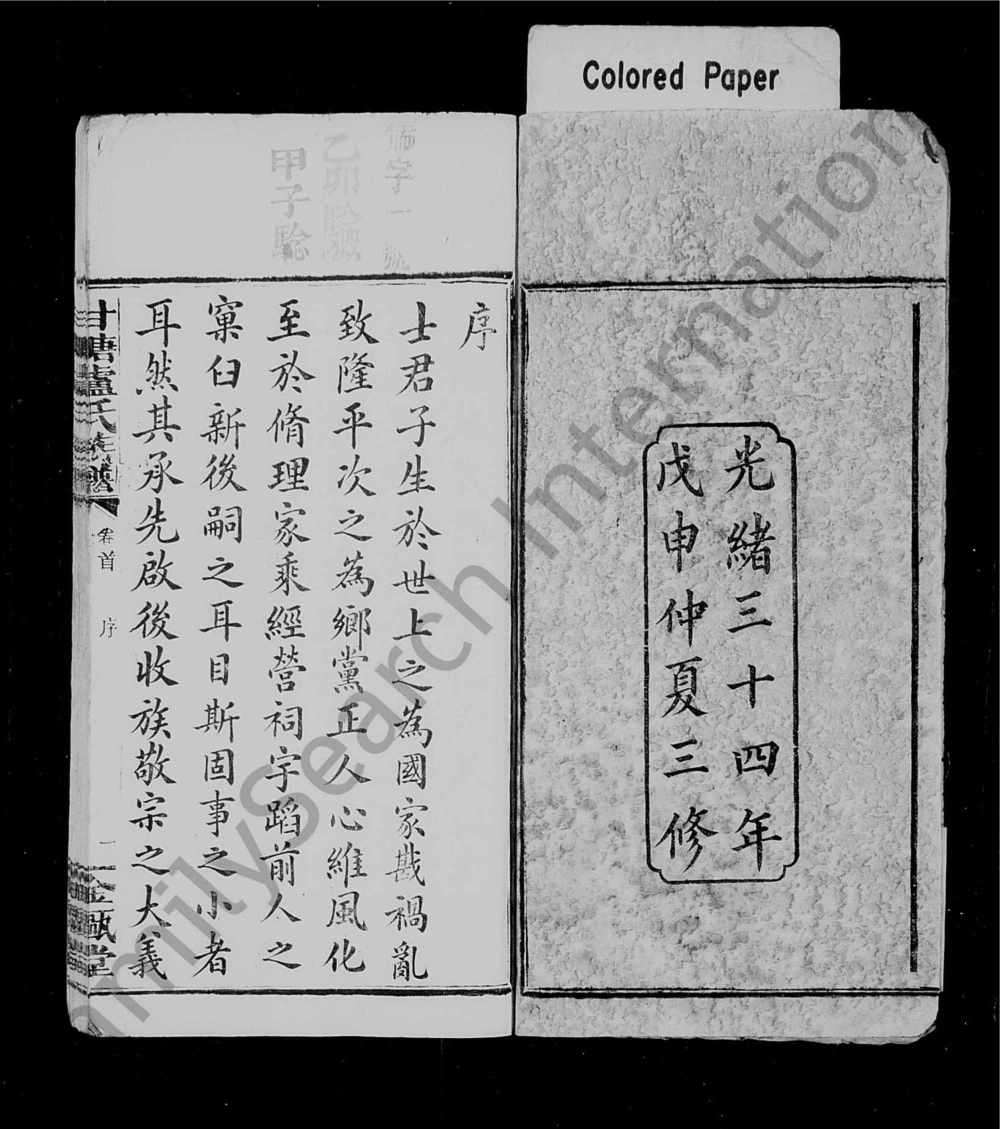 Colored Paper
光緒三十四年
戊申仲夏三修
字一號
乙卯驗
甲子驗
序
士君子生於世上之為國家戡禍亂
致隆平次之為鄉黨正人心維風化
至於脩理家乘經營祠宇蹈前人之
窠臼新後嗣之耳目斯固事之小者
耳然其承先啟後收族敬宗之大義
甘塘盧氏族譜
卷首
序
一
金甌堂
FamilySearch International